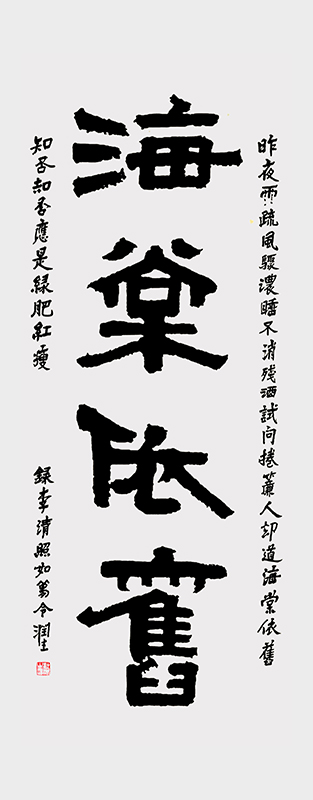 海棠依舊
昨夜雨疏風驟濃睡不消殘酒試问捲簾人却道海棠依舊
知否知否應是緑肥紅瘦
録李清照如夢令潤生